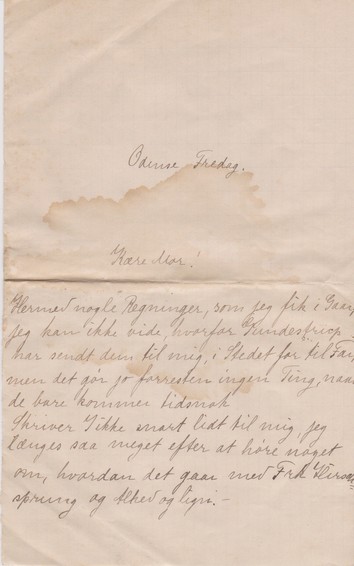 Odense Fredag.
Kære Mor!
Hermed nogle Regninger, som jeg fik i Gaar,
jeg kan ikke vide, hvorfor Gundestrup
har sendt dem til mig, i Stedet for til Far,
men det gør jo forresten ingen Ting, naar
de bare kommer tidsnok
Skriver I ikke snart lidt til mig, jeg
længes saa meget efter at høre noget
om, hvordan det gaar med Frk Hirsch=
sprung og Alhed og lign. —